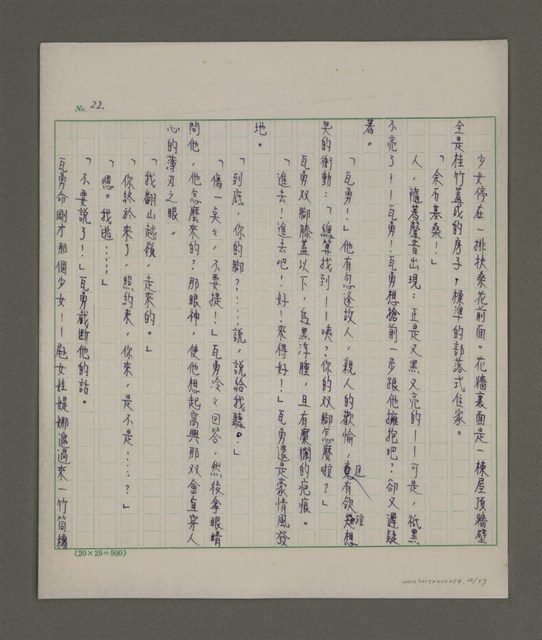 No. 22.
少女停在一排扶桑花前面。花牆裏面是一棟屋頂牆壁
全是桂竹蓋成的房子,標準的部落式住家。
「余石基桑!」
人,隨著聲音出現:正是又黑又亮的——可是,祇黑
不亮了——瓦勇!瓦勇想搶前一步跟他擁抱吧?卻又遲疑
著。
「瓦勇!」他有忽逢故人,親人的歡愉,竟有欲
哭的衝動:「總算找到——咦?你的双腳怎麼啦?」
瓦勇双腳膝蓋以下,烏黑浮腫,且有糜爛的疤痕。
「進去!進去吧!好!來得好!」瓦勇還是豪情風發
地。
「到底,你的腳?……說,說給我聽。」
「傷一矣々,不要提!」瓦勇冷々回答,然後拿眼睛
問他,他怎麼來的?那眼神,使他想起高興那双會直穿人
心的薄刃之眼。
「我翻山越嶺,走來的。」
「你終於來了,照約束,你來,是不是……?」
「嗯。我逃……」
「不要說了!」瓦勇截斷他的話。
瓦勇命剛才那個少女——尪女娃媞娜遞過來一竹筒
(20×25=500)